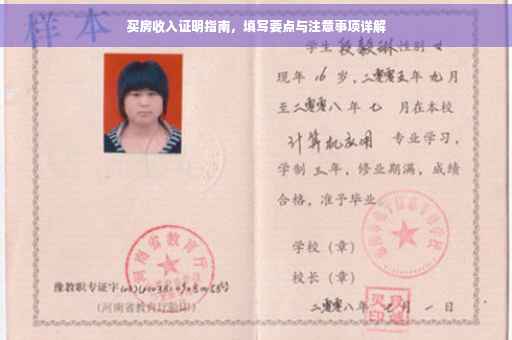 买房收入证明指南，填写要点与注意事项详解
样本
学生 段毅琳 性别
现年 16 岁，二零零五年 九 月
至二零零八年 七 月在本校
计算机应用 专业学习，
学制 三 年，修业期满，成绩
合格，准予毕业。
学校（章）
校长（章）
二零零八年 月 一 日
河南省教育厅
豫教职专证字
（河南省教育厅验印）